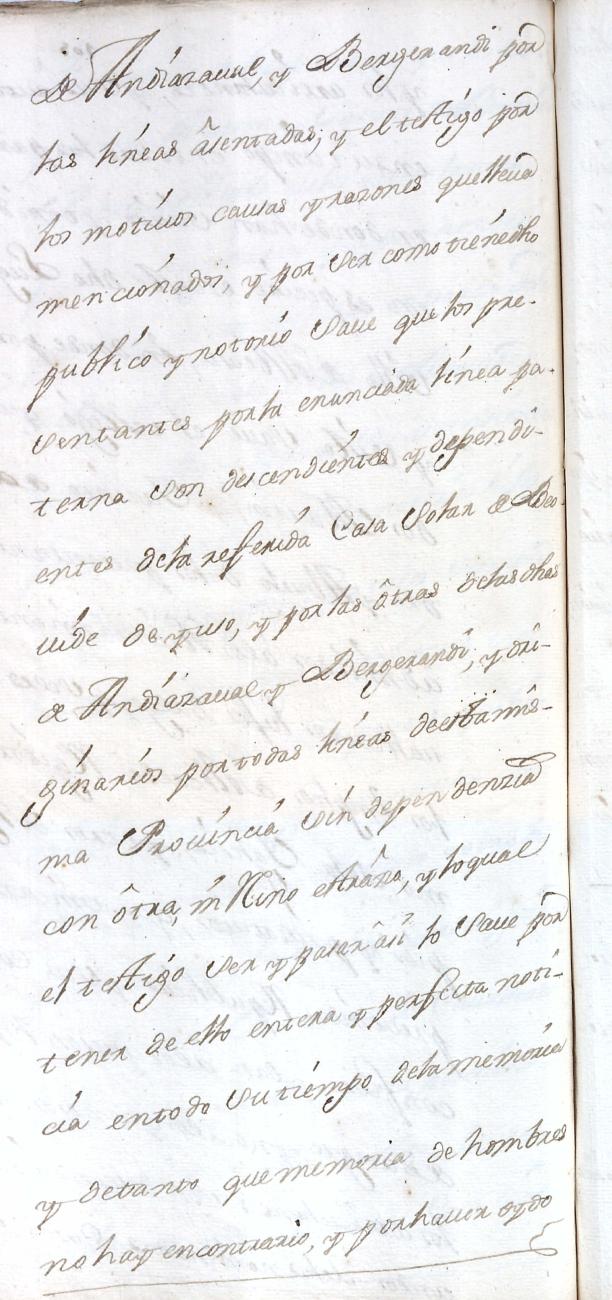 de Andiazaual, y Bergerandi por
las lineas âsentadas; y el testigo por
los motiuos causas y razones que lleua
mencionados, y por ser como tiene dho
publico y notorio saue que los pre-
sentantes por la enunciada linea pa-
terna son descendientes y dependi-
entes de la referida Casa Solar de Beo-
uide de yuso, y por las ôtras de las dhas
de Andiazaual y Bergerandi, y ori-
ginarios por todas lineas de esta mis-
ma Prouincia sin dependenzia
con ôtra, ni Nino estraña, y lo qual
el testigo ser y pasar âsi lo saue por
tener de ello entera y perfecta noti-
cia en todo su tiempo de la memoria
y de tanto que memoria de hombres
no hay en contrario, y por hauer oydo